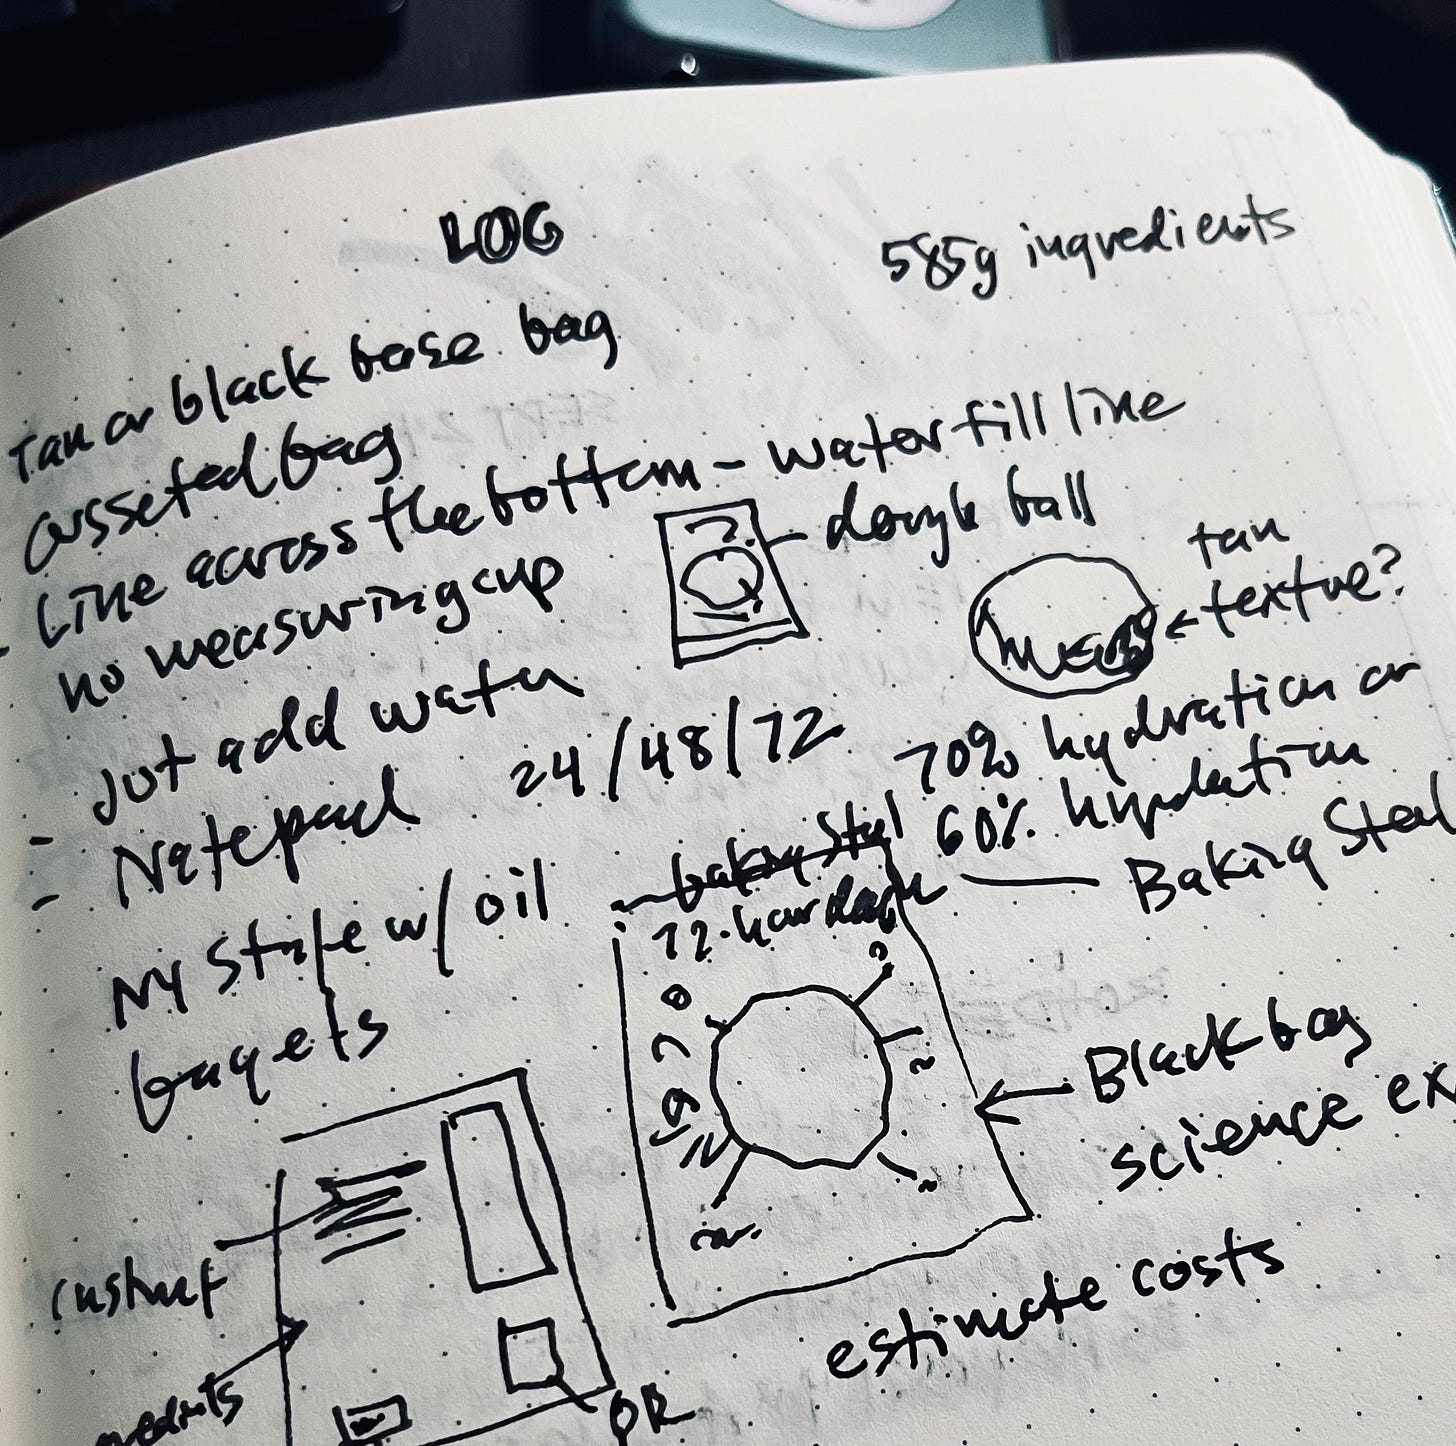 LOG
585g ingredients
Tan or black base bag
Gusseted bag
Line across the bottom - water fill line
dough ball
no measuring cup
tan
texture?
Jut add water
Notepad 24/48/72
70% hydration or
60% hydration
baking Steel
Baking Steel
72-hour dough
NY Style w/ oil
baguets
Black bag
science ex
estimate costs
QR